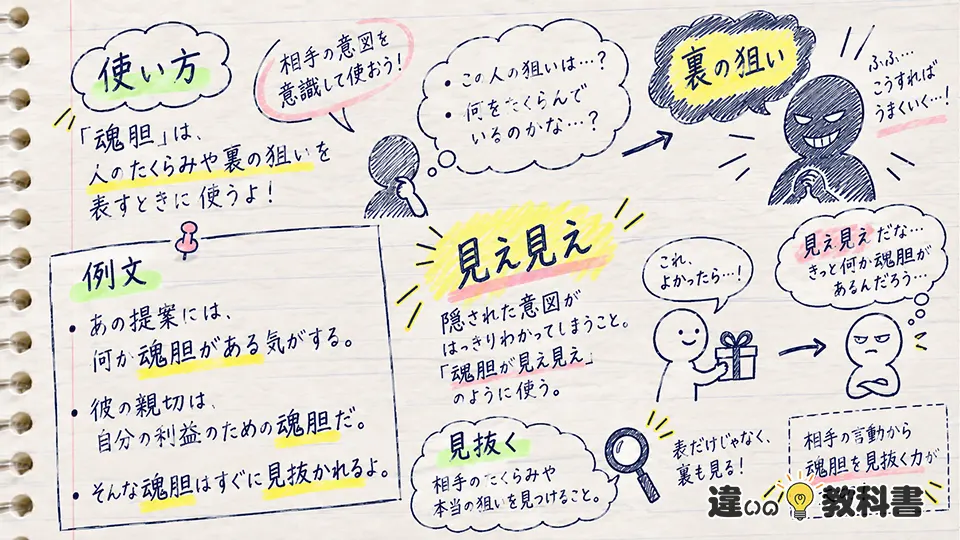 使い方
「魂胆」は、
人のたくらみや裏の狙いを
表すときに使うよ！
相手の意図を
意識して使おう！
・この人の狙いは…？
・何をたくらんで
いるのかな…？
裏の狙い
ふふ…
こうすれば
うまくいく…！
例文
・あの提案には、
何か魂胆がある気がする。
・彼の親切は、
自分の利益のための魂胆だ。
・そんな魂胆はすぐに見抜かれるよ。
見え見え
隠された意図が
はっきりわかってしまうこと。
「魂胆が見え見え」
のように使う。
これ、
よかったら…！
見え見えだな…
きっと何か魂胆が
あるんだろう…
見抜く
相手のたくらみや
本当の狙いを見つけること。
表だけじゃなく、
裏も見る！
相手の言動から
魂胆を見抜く力が
違いの教科書